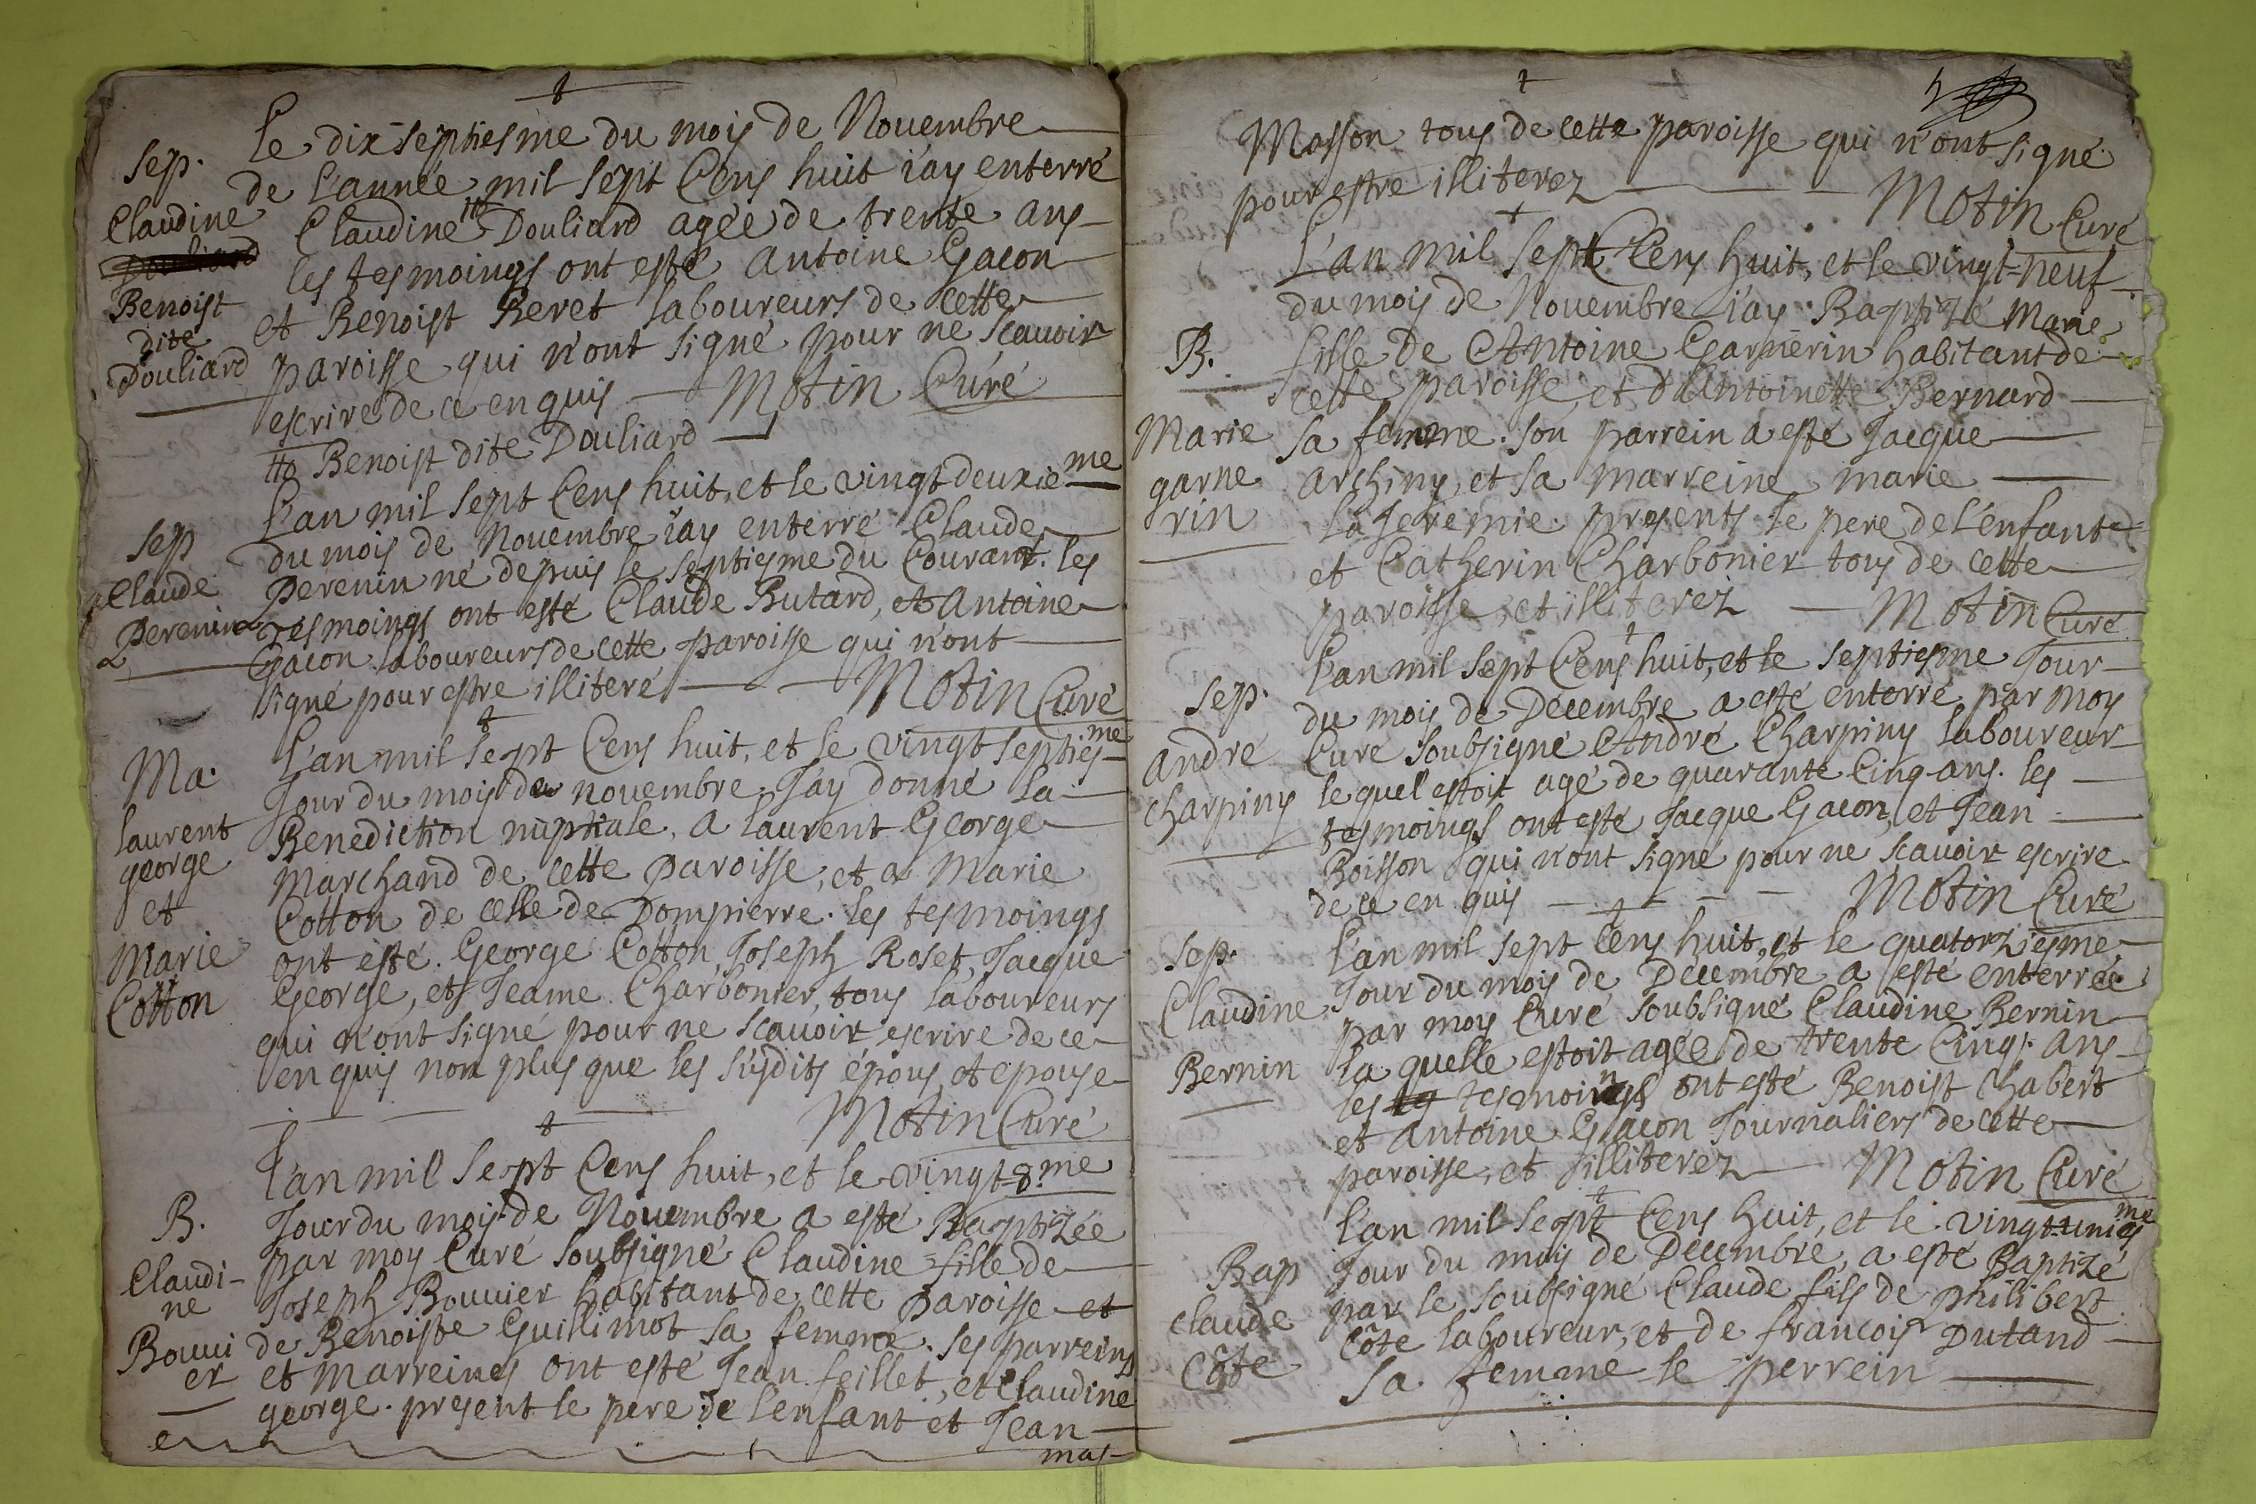 Le dix-septiesme du mois de Nouembre
Sep.
de l'année mil sept Cens huit i'ay enterré
Claudine
Claudine Douliard agée de trente ans
les tesmoings ont esté antoine Gacon
Benoist
et Benoist Beret laboureurs de cette
dite
Douliard
paroisse qui n'ont signé pour ne scauoir
escrire de ce enquis Motin Curé
tto Benoist dite Douliard
L'an mil sept Cens huit, et le vingt deuxieme
Sep
du mois de Nouembre i'ay enterré Claude
Claude
Perenin né depuis le septiesme du Courant. les
Perenin
tesmoings ont esté Claude Butard, et antoine
Gacon laboureurs de cette paroisse qui n'ont
signé pour estre illiteré Motin Curé
L'an mil sept Cens huit, et le vingt septiesme
Ma.
Jour du mois de nouembre J'ay donné la
laurent
Benediction nuptiale, a laurent George
george
Marchand de cette paroisse, et a Marie
et
Cotton de celle de Dompierre. les tesmoings
Marie
ont esté. George Cotton, Joseph Roset, Jacque
Cotton
George, et Jeame Charbonier, tous laboureurs
qui n'ont signé pour ne scauoir escrire de ce
enquis non plus que les susdits épous, et epouse
Motin Curé
L'an mil sept Cens huit, et le vingt 8.me
B.
Jour du mois de Nouembre a esté Baptizée
par moy Curé soubsigné Claudine fille de
Claudi-
ne
Joseph Bouuier habitant de cette paroisse et
Bouui
de Benoiste Guillimot sa femme. ses parreins
er
et marreines ont esté Jean feillet, et Claudine
george. present le pere de l'enfant et Jean
mas-
Masson tous de cette paroisse qui n'ont signé
pour estre illiterez Motin Curé
L'an mil sept Cens huit, et le vingt=neuf
du mois de Nouembre i'ay Baptizé Marie
B.
fille de Antoine Garnerin habitant de
cette paroisse, et d'Antoinette Bernard
Marie
sa femme. son parrein a esté Jacque
garne
Archiny, et sa marreine marie
rin
la Jeremie. presents le pere de l'enfant
et Catherin Charbonier tous de cette
paroisse, et illiterez Motin Curé
L'an mil sept Cens huit, et le septiesme Jour
Sep.
du mois de Decembre a esté enterré par moy
andré
Curé soubsigné André Charpiny laboureur
charpiny
lequel estoit agé de quarante Cinq ans. les
tesmoings ont esté Jacque Gacon, et Jean
Boisson qui n'ont signé pour ne scauoir escrire
de ce enquis Motin Curé
L'an mil sept Cens huit, et le quatorziesme
Sep.
Jour du mois de Decembre a esté enterrée
Claudine
par moy Curé soubsigné Claudine Bernin
Bernin
la quelle estoit agée de trente Cinq ans
les tesmoings ont esté Benoist Chabert
et antoine Gacon Journaliers de cette
paroisse, et illiterez Motin Curé
L'an mil sept Cens huit, et le vingt-uniesme
Bap
Jour du mois de Decembre, a esté Baptizé
claude
par le soubsigné Claude fils de philibert
Côte
Côte laboureur, et de francois Dutand
sa femme le perrein